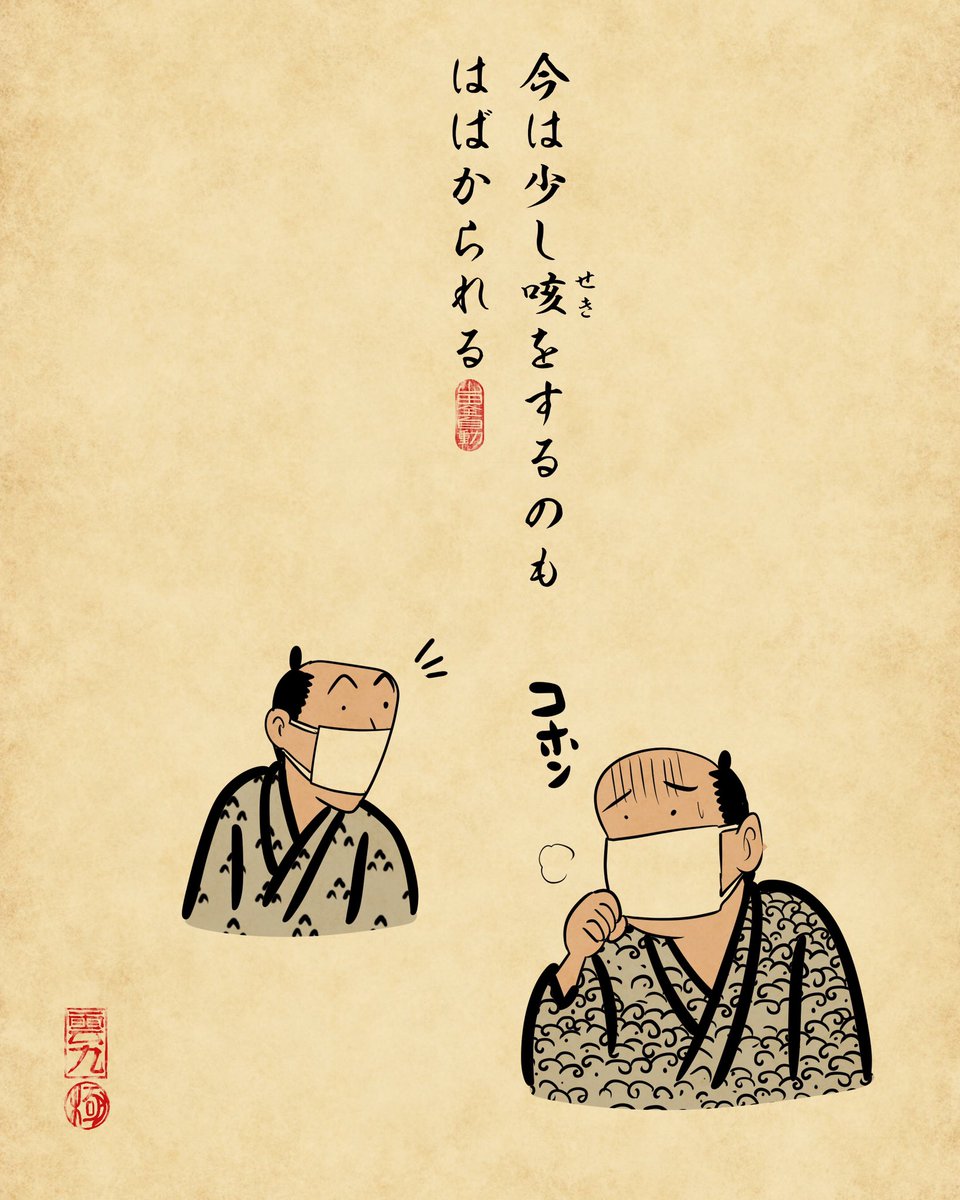 今は少し咳をするのも
せき
はばかられる
コホン
雲九
極